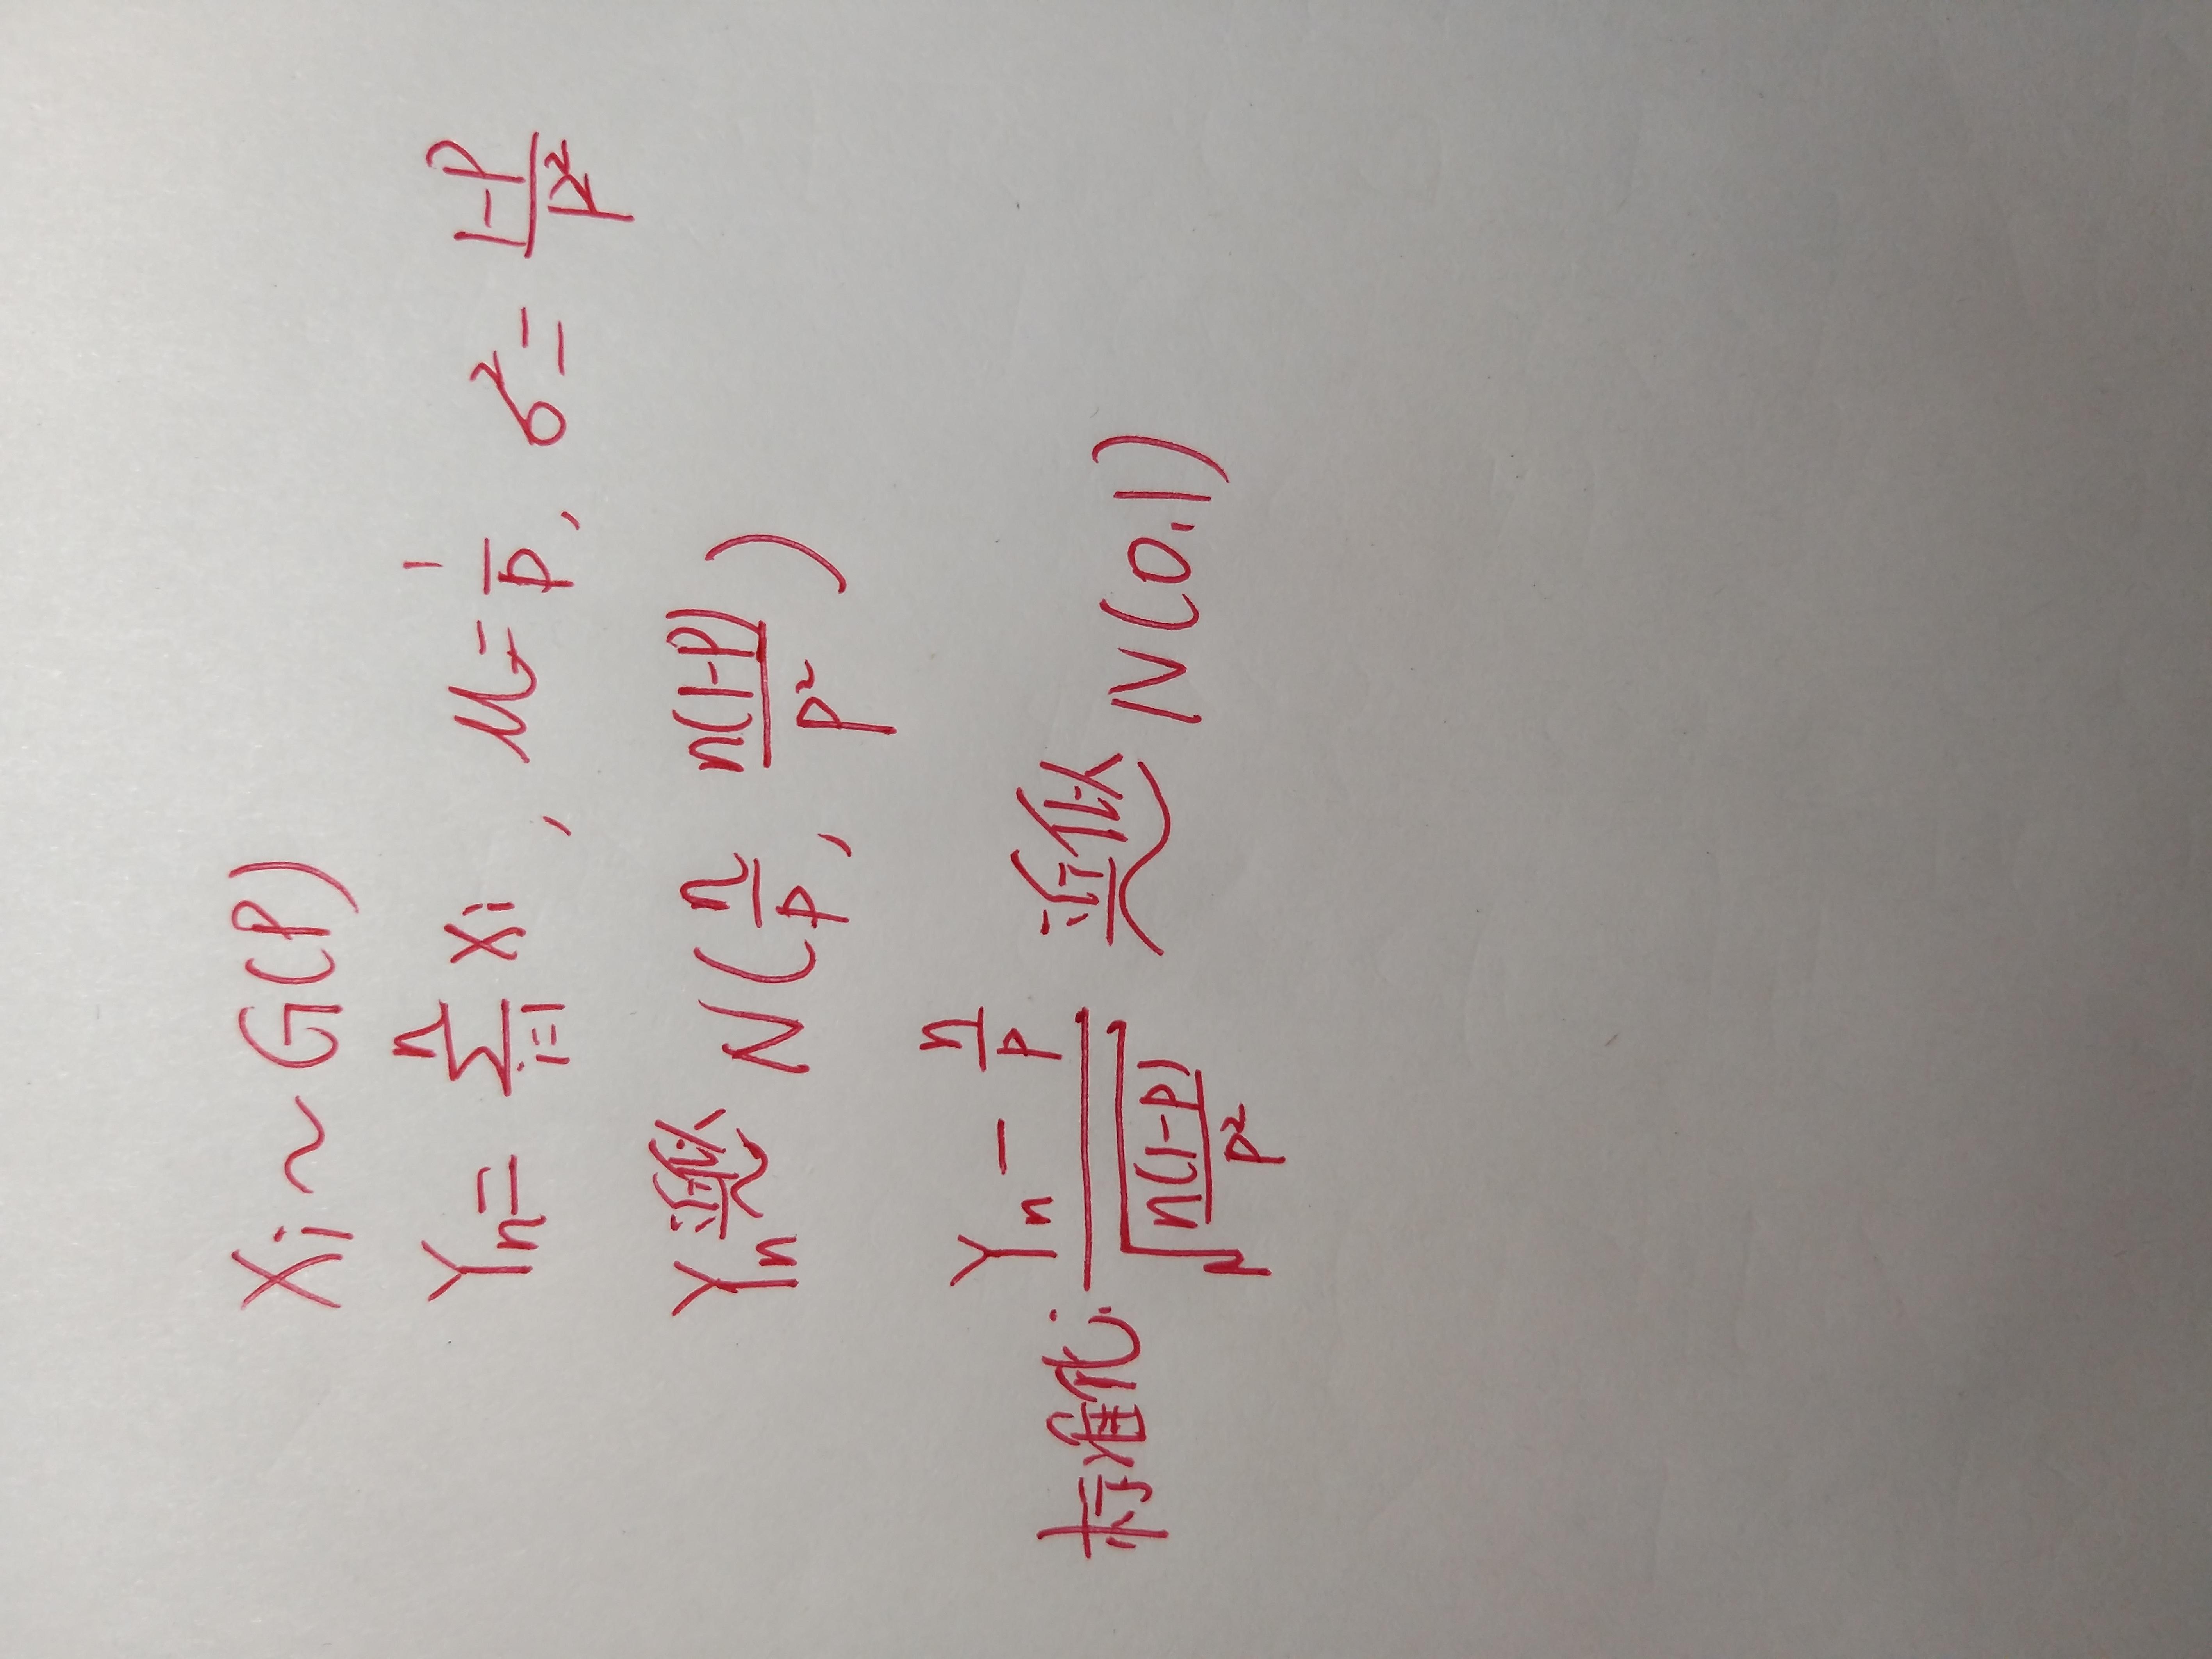 Xi ~ G(P)
Yn = \sum_{i=1}^{n} Xi , μ = \frac{1}{p}, σ² = \frac{1-P}{p²}
Yn 近似~ N(\frac{n}{p}, \frac{n(1-P)}{p²})
标准化: \frac{Yn - \frac{n}{p}}{\sqrt{\frac{n(1-P)}{p²}}} 近似~ N(0.1)